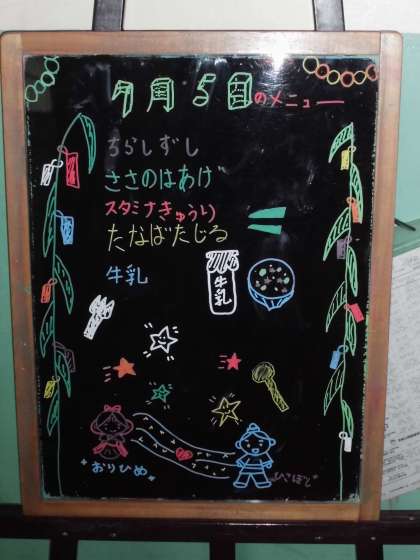 7月5日のメニュー
ちらしずし
ささのはあげ
スタミナきゅうり
たなばたじる
牛乳
牛乳
おりひめ
ひこぼし